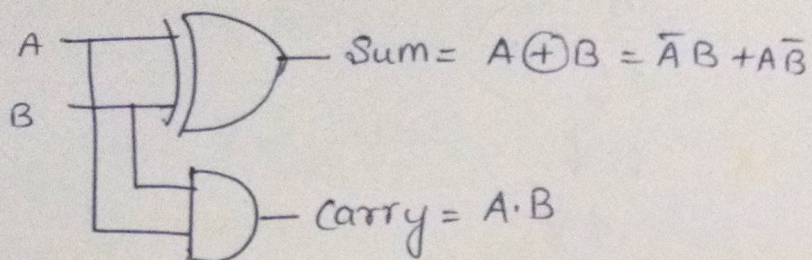 A
Sum = A ⊕ B = A̅ B + A B̅
B
Carry = A · B